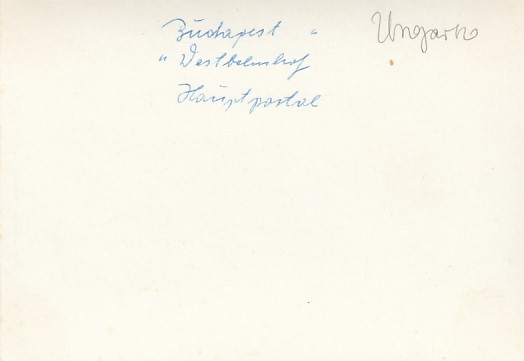 Budapest "
" Westbahnhof
Hauptportal
Ungarn